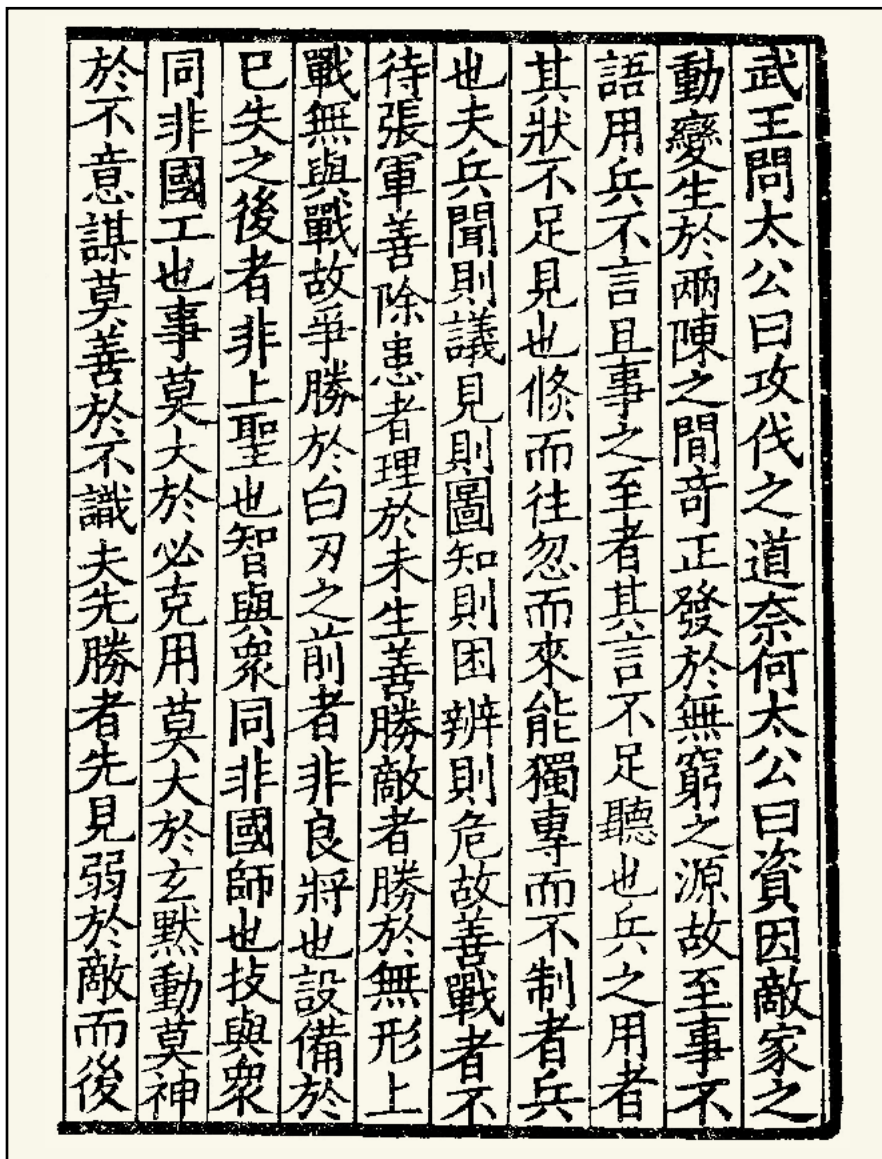 武王問太公曰攻伐之道奈何太公曰資因敵家之
動變生於兩陳之間奇正發於無窮之源故至事不
語用兵不言且事之至者其言不足聽也兵之用者
其狀不足見也倐而往忽而來能獨專而不制者兵
也夫兵聞則議見則圖知則困辨則危故善戰者不
待張軍善除患者理於未生善勝敵者勝於無形上
戰無與戰故爭勝於白刃之前者非良將也設備於
已失之後者非上聖也智與衆同非國師也技與衆
同非國工也事莫大於必克用莫大於玄黙動莫神
於不意謀莫善於不識夫先勝者先見弱於敵而後